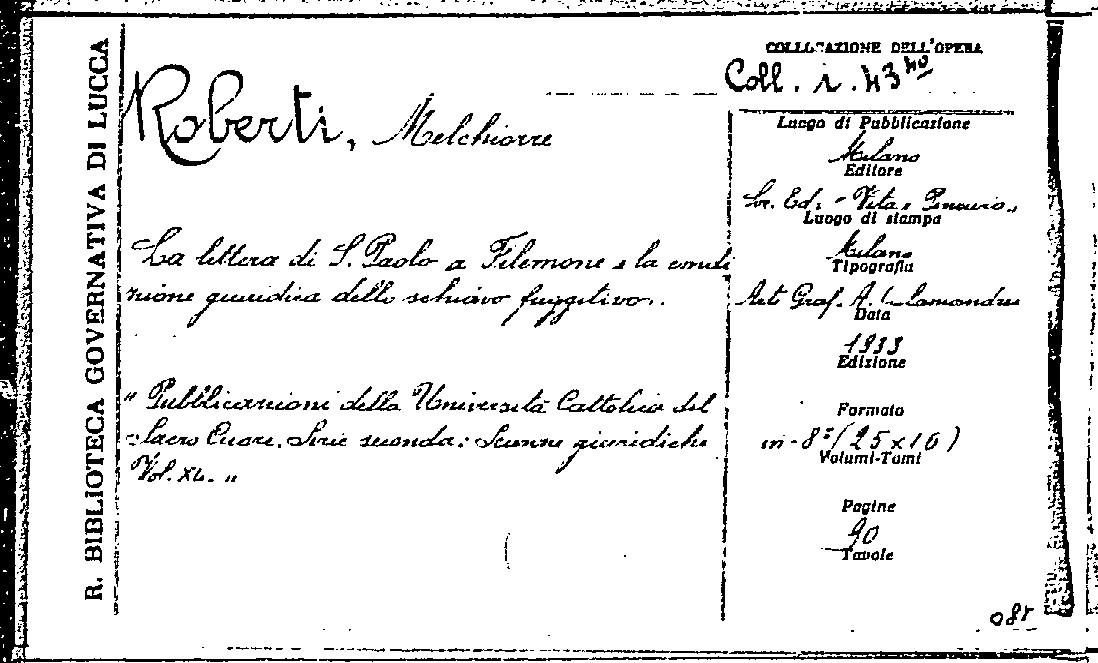 R. BIBLIOTECA GOVERNATIVA DI LUCCA
Roberti, Melchiorre
La lettera di S. Paolo a Filemone e la condi
zione giuridica dello schiavo fuggitivo..
"Pubblicazioni della Università Cattolica del
Sacro Cuore. Serie seconda: Scienze giuridiche
Vol. XL. "
COLLOCAZIONE DELL'OPERA
Coll. 1. 43 40
Luogo di Pubblicazione
Milano
Editore
Soc. Ed. "Vita e Pensiero"
Luogo di stampa
Milano
Tipografia
Arti Graf. A.
Data
1933
Edizione
Formato
in-8° (25x16)
Volumi-Tomi
Pagine
90
Tavole